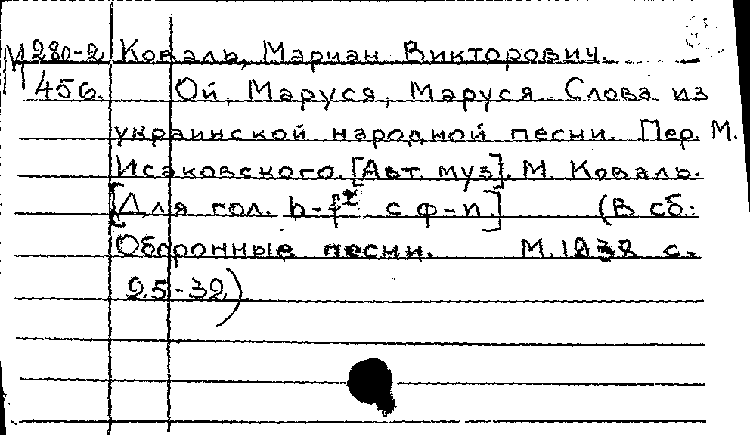 М 280-2 Коваль, Мариан Викторович.
456. Ой, Маруся, Маруся. Слова из
украинской народной песни. Пер. М.
Исаковского. [Авт. муз]. М. Коваль.
[Для гол. h-f² с ф-п.] (В сб:
Оборонные песни. М. 1938 с.
25-32)